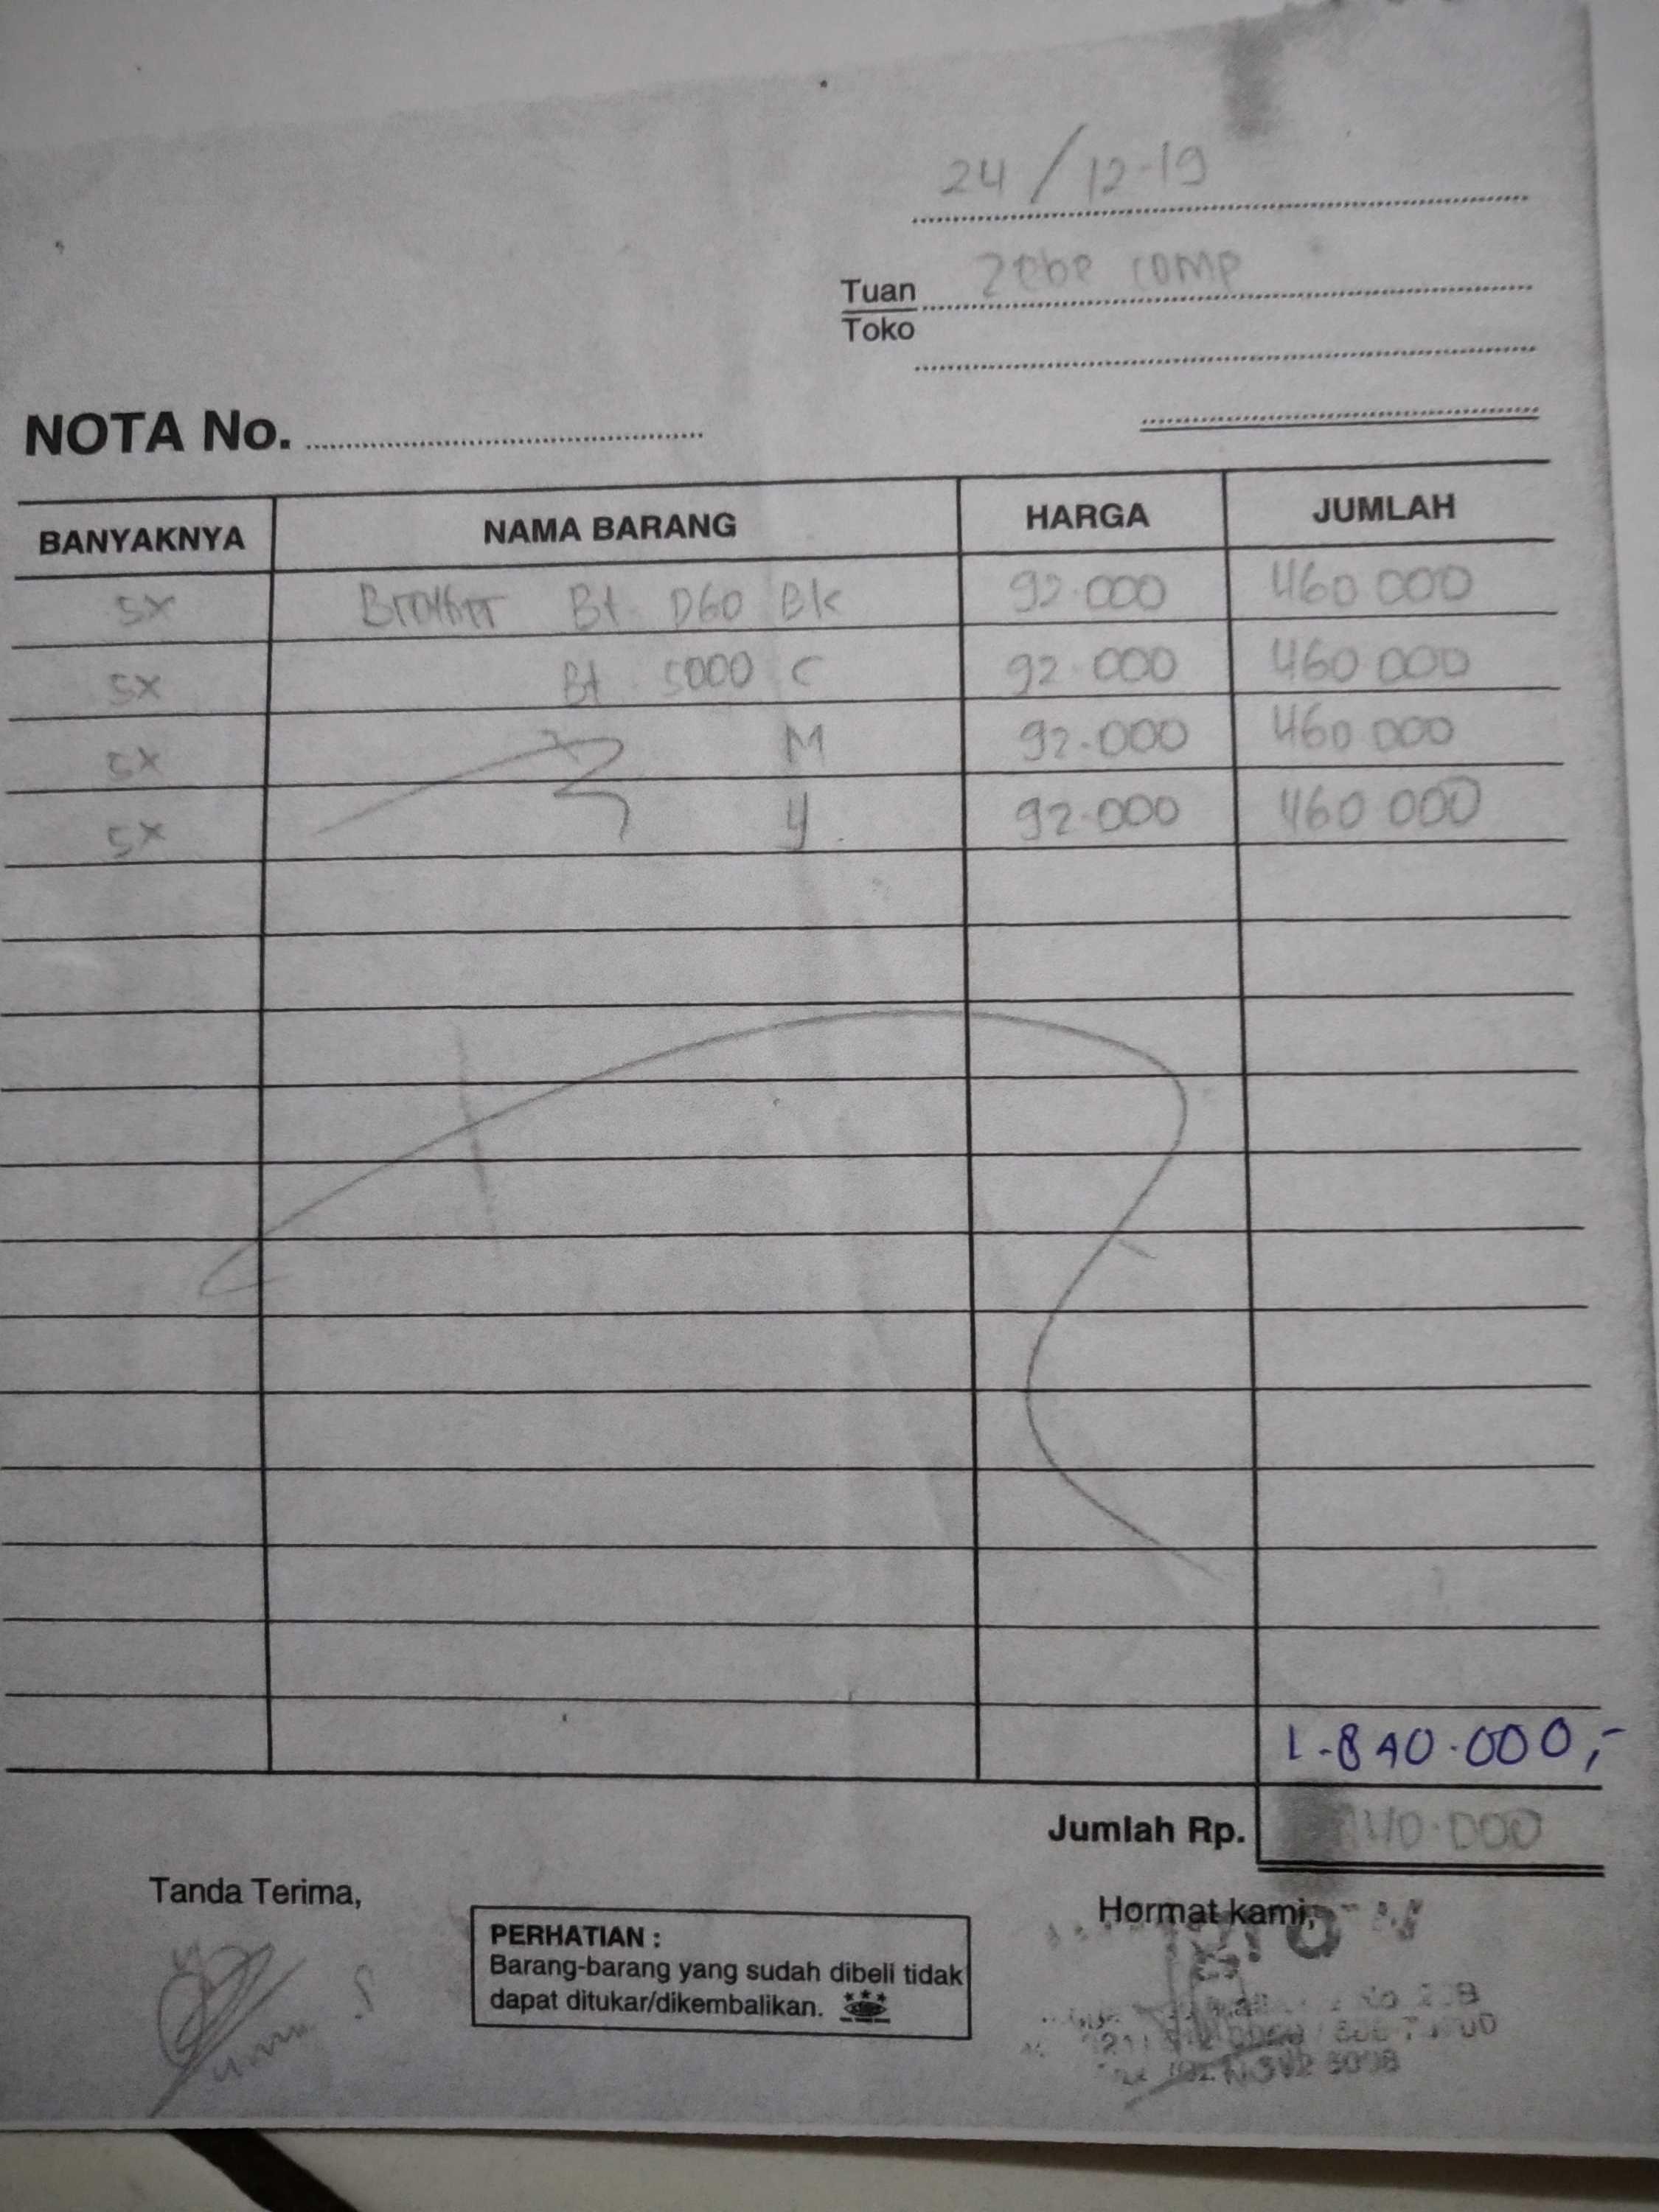 24 / 12-19
Tuan Zebe comp
Toko
NOTA No.
BANYAKNYA NAMA BARANG HARGA JUMLAH
5x Bt D60 Bk 92.000 460 000
5x Bt 5000 C 92.000 460 000
5x M 92.000 460 000
5x Y 92.000 460 000
1.840.000,-
Jumlah Rp. 40.000
Tanda Terima,
Hormat kami,
PERHATIAN :
Barang-barang yang sudah dibeli tidak
dapat ditukar/dikembalikan.